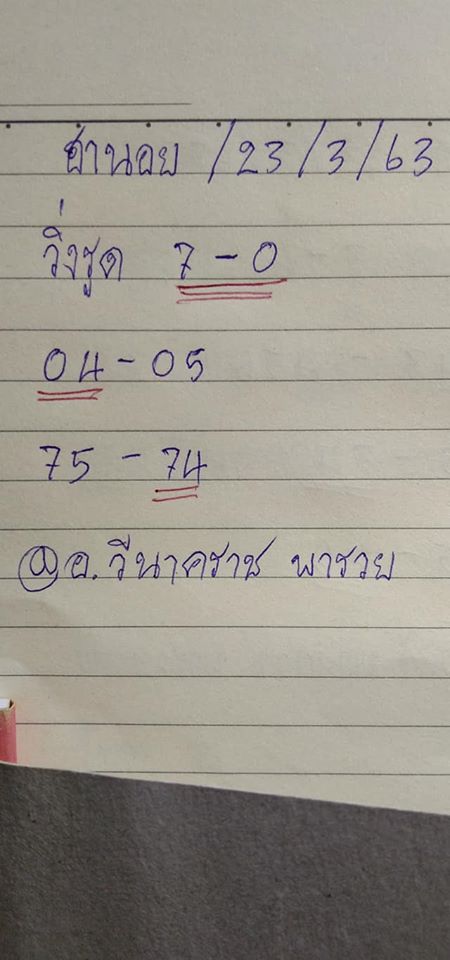 ฮานอย /23/3/63
วิ่งรูด 7-0
04-05
75-74
@อ.วีนาคราช พารวย